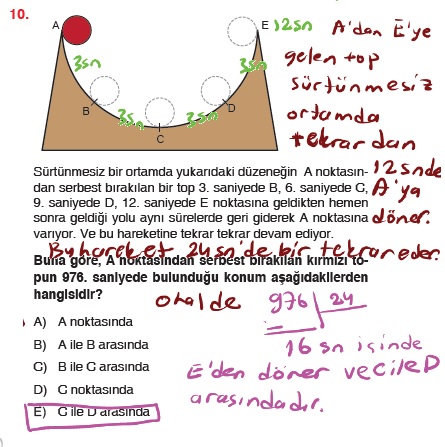 10.
A
E
12sn
A'dan E'ye
gelen top
sürtünmesiz
ortamda
tekrardan
12snde
A'ya
döner.
3sn
3sn
B
D
3sn
3sn
C
Sürtünmesiz bir ortamda yukarıdaki düzeneğin A noktasın-
dan serbest bırakılan bir top 3. saniyede B, 6. saniyede C,
9. saniyede D, 12. saniyede E noktasına geldikten hemen
sonra geldiği yolu aynı sürelerde geri giderek A noktasına
varıyor. Ve bu hareketine tekrar tekrar devam ediyor.
Bu hareket 24sn'de bir tekrar eder.
Buna göre, A noktasından serbest bırakılan kırmızı to-
pun 976. saniyede bulunduğu konum aşağıdakilerden
hangisidir?
O halde
976 24
16 sn içinde
E'den döner ve C ile D
arasındadır.
A) A noktasında
B) A ile B arasında
C) B ile C arasında
D) C noktasında
E) C ile D arasında